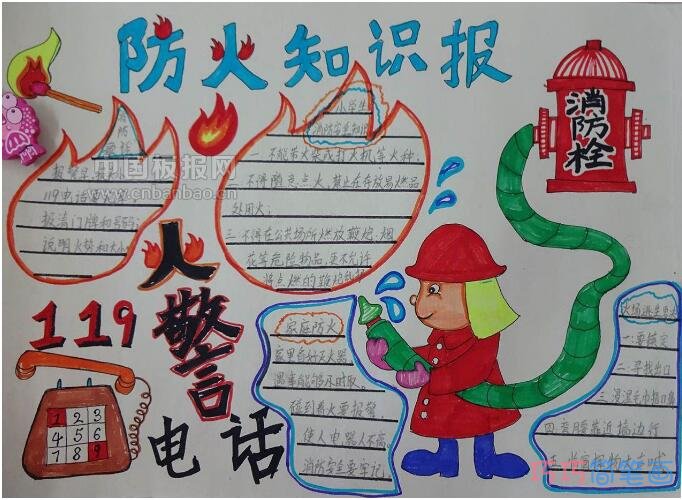 防火知识报
中国板报网
www.cnbanbao.cn
119电话
报清门牌和号码;
说明火势和大小
小学生
消防安全知识
不能带火柴或打火机等火种.
二.不得随意点火,禁止在存放易燃品
处用火;
三.不得在公共场所燃放鞭炮.烟
花等危险物品,更不允许
将点燃的鞭炮乱扔
消防栓
火警电话
119
1 2 3
4 5 6
7 8 9
家庭防火
家里备好灭火器
遇事能够及时取.
碰到着火要报警.
使人电器人不离.
消防安全要牢记.
火场逃生
一.要镇定
二.寻找出口
三.浸湿毛巾捂口鼻
四.弯腰靠近墙边行
简笔画